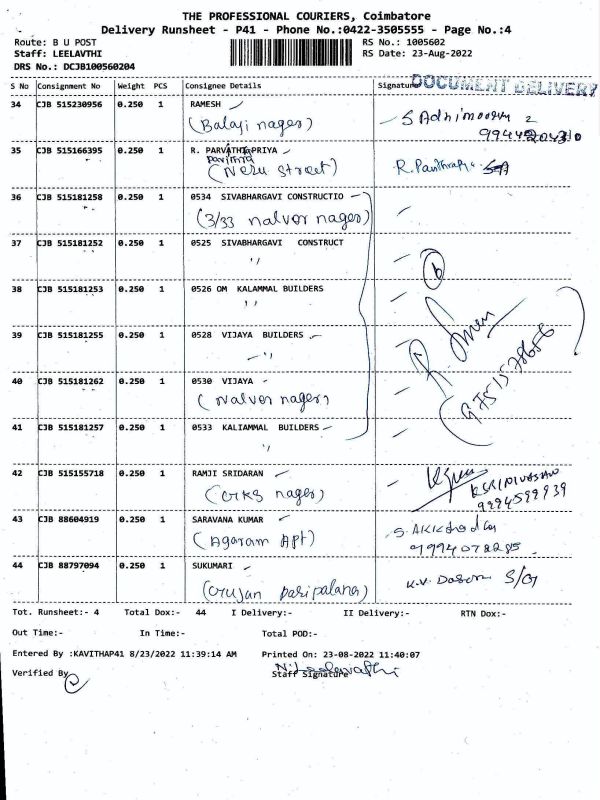 THE PROFESSIONAL COURIERS, Coimbatore
Delivery Runsheet - P41 - Phone No.:0422-3505555 - Page No.:4
Route: B U POST
RS No.: 1005602
Staff: LEELAVTHI
RS Date: 23-Aug-2022
DRS No.: DCJB100560204
S No Consignment No Weight PCS Consignee Details Signature
DOCUMENT DELIVERY
34 CJB 515230956 0.250 1 RAMESH
(Balaji nager)
35 CJB 515166395 0.250 1 R. PARVATHTAPRIYA
(Neru street)
36 CJB 515181258 0.250 1 0534 SIVABHARGAVI CONSTRUCTIO
(3/33 nalvor nager)
37 CJB 515181252 0.250 1 0525 SIVABHARGAVI CONSTRUCT
"
38 CJB 515181253 0.250 1 0526 OM KALAMMAL BUILDERS
"
39 CJB 515181255 0.250 1 0528 VIJAYA BUILDERS
"
40 CJB 515181262 0.250 1 0530 VIJAYA
(Nalvor nager)
41 CJB 515181257 0.250 1 0533 KALIAMMAL BUILDERS
"
42 CJB 515155718 0.250 1 RAMJI SRIDARAN
nager)
KSRINIVASAN
9994599939
43 CJB 88604919 0.250 1 SARAVANA KUMAR
(Agaram Apt)
44 CJB 88797094 0.250 1 SUKUMARI
paripalana)
Tot. Runsheet:- 4 Total Dox:- 44 I Delivery:- II Delivery:- RTN Dox:-
Out Time:- In Time:- Total POD:-
Entered By :KAVITHAP41 8/23/2022 11:39:14 AM Printed On: 23-08-2022 11:40:07
Verified By
Staff Signature